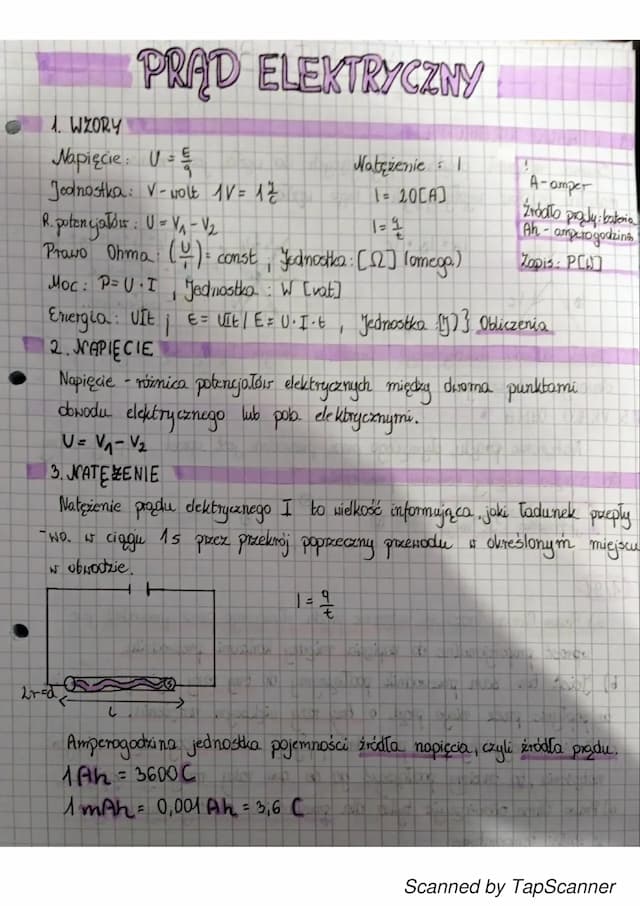 PRĄD ELEKTRYCZNY
1. WZORY
Napięcie: U = E/q
Natężenie = I
!
Jednostka: V - wolt 1V = 1
I = 20[A]
A - amper
R. potencjałów: U = V₁ - V₂
I = q/t
Źródło prądu: bateria
Ah - amperogodzina
Prawo Ohma: (U/I) = const, Jednostka: [Ω] (omega)
Zapis: P[W]
Moc: P = U · I , Jednostka: W [vat]
Energia: UIt j E = UIt / E = U · I · t , Jednostka: [J] } Obliczenia
2. NAPIĘCIE
Napięcie - różnica potencjałów elektrycznych między dwoma punktami
obwodu elektrycznego lub pola elektrycznymi.
U = V₁ - V₂
3. NATĘŻENIE
Natężenie prądu elektrycznego I to wielkość informująca, jaki ładunek przepły
-wa. w ciągu 1s przez przekrój poprzeczny przewodu w określonym miejscu
w obwodzie.
I = q/t
2r=d
S
L
Amperogodzina jednostka pojemności źródła napięcia, czyli źródła prądu.
1 Ah = 3600 C
1 mAh = 0,001 Ah = 3,6 C
Scanned by TapScanner